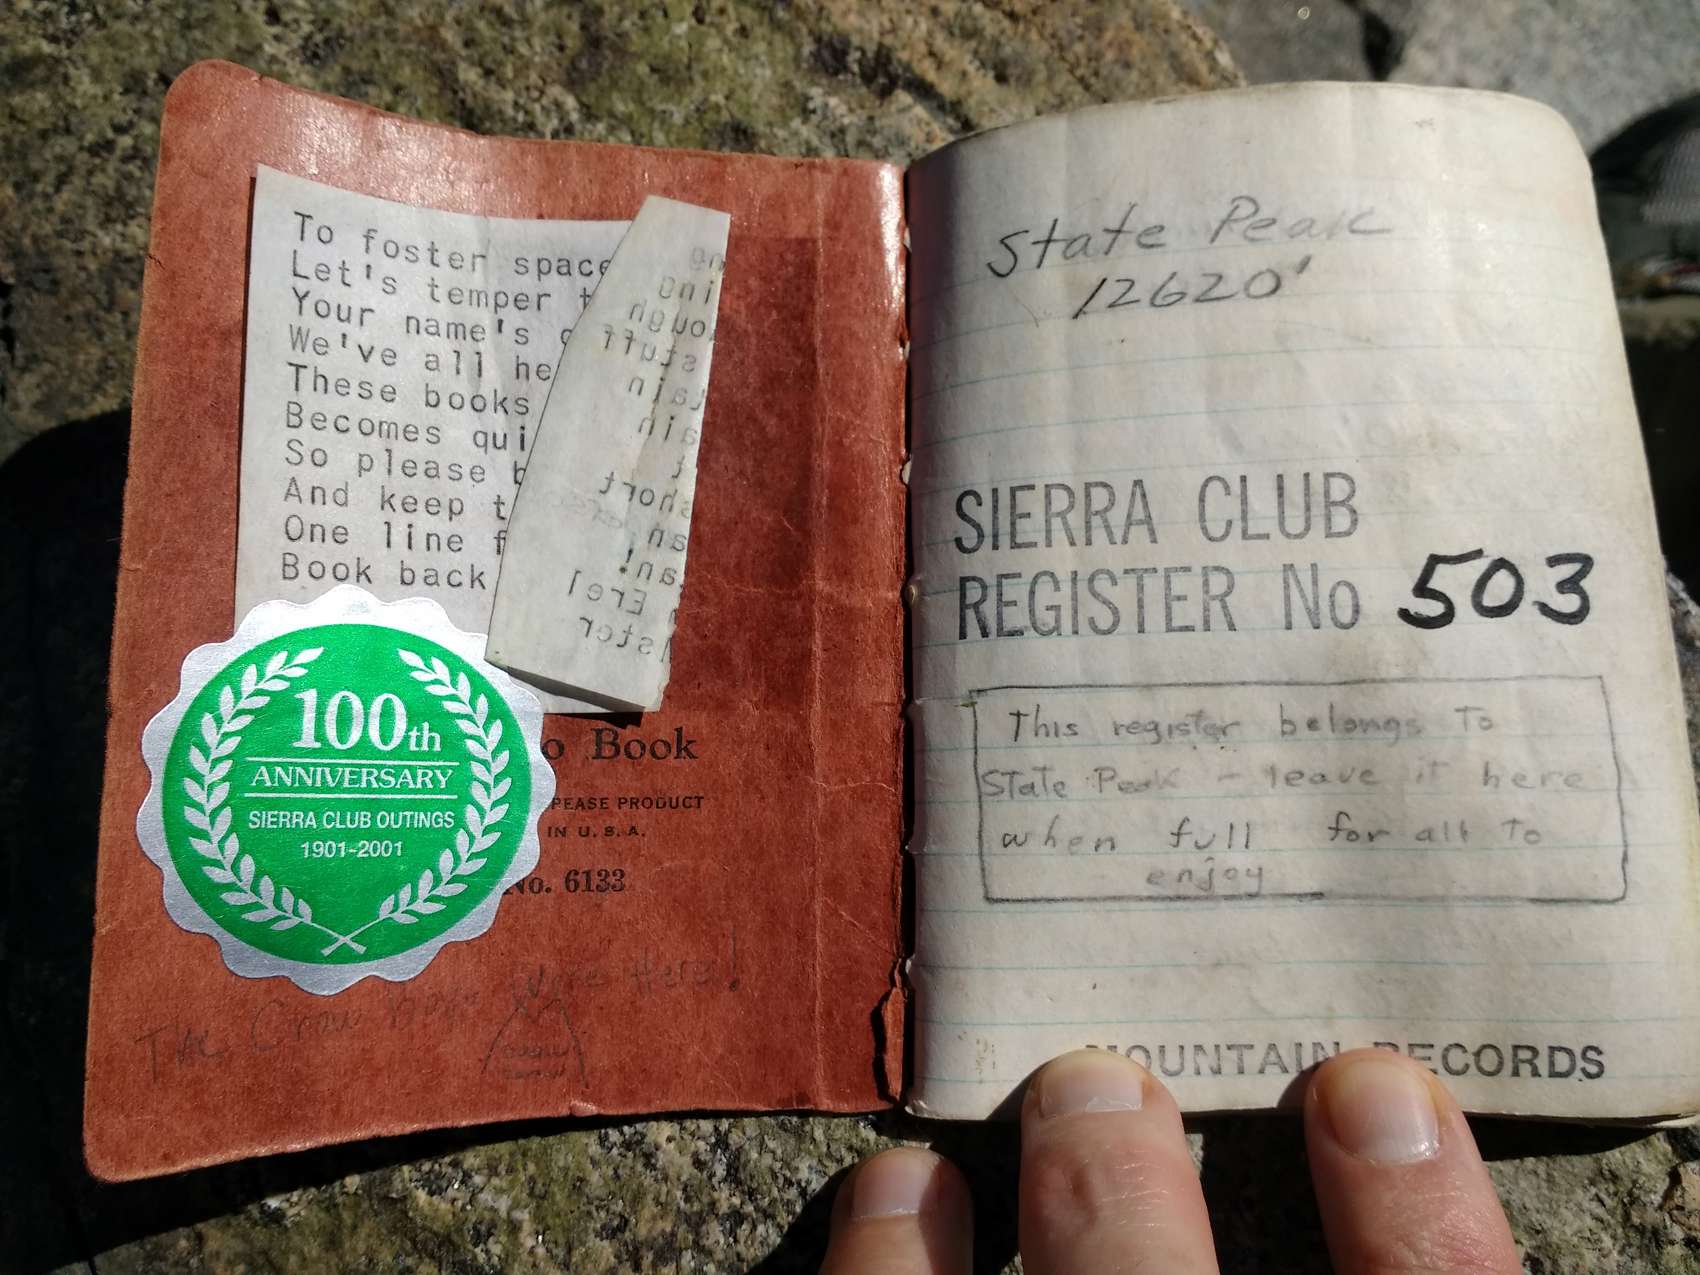 To foster space
Let's temper
Your name's
We've all he
These books
Becomes qui
So please b
And keep t
One line f
Book back
ing
ough
stuff
tain
ain
t
short
an
an!
Erel
ster
100th
ANNIVERSARY
SIERRA CLUB OUTINGS
1901-2001
o Book
PEASE PRODUCT
IN U. S. A.
No. 6133
The Crow Boys Were Here!
State Peak
12620'
SIERRA CLUB
REGISTER No 503
This register belongs To
State Peak - leave it here
when full for all To
enjoy
MOUNTAIN RECORDS